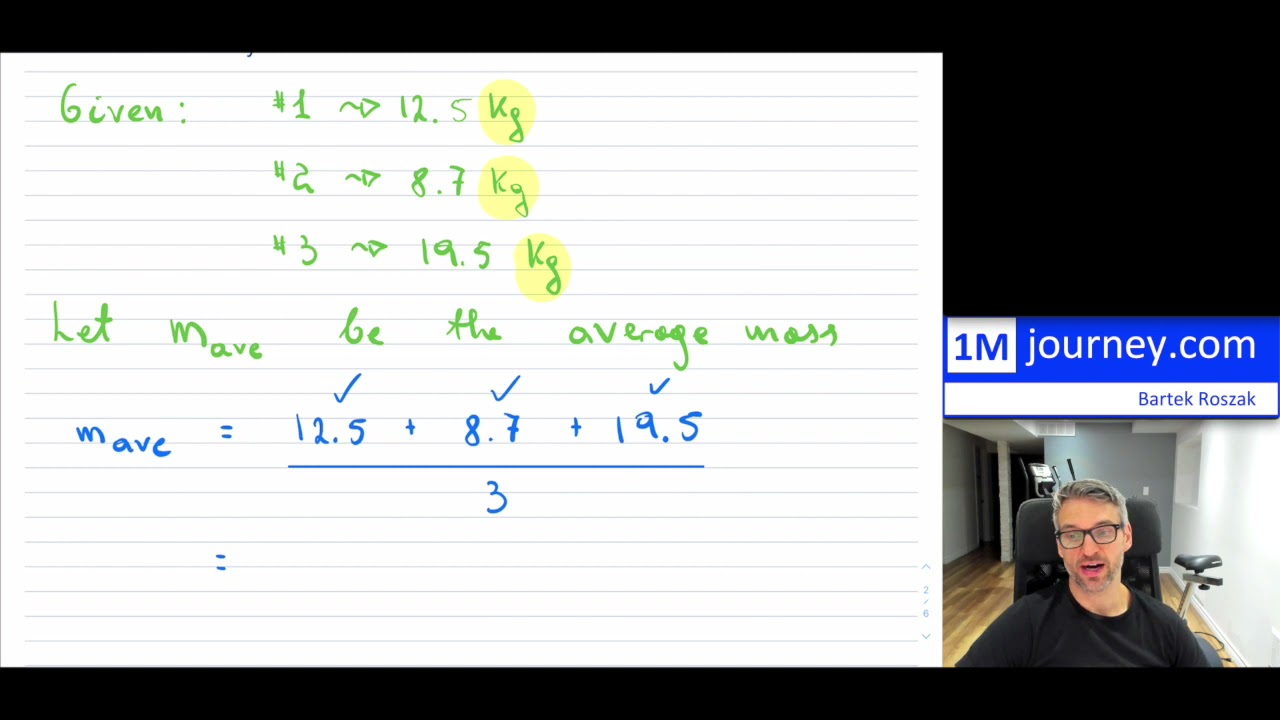 Given: #1 ~> 12.5 Kg
#2 ~> 8.7 Kg
#3 ~> 19.5 Kg
Let mave be the average mass
✓ ✓ ✓
mave = 12.5 + 8.7 + 19.5
3
=
2
/
6
1M journey.com
Bartek Roszak